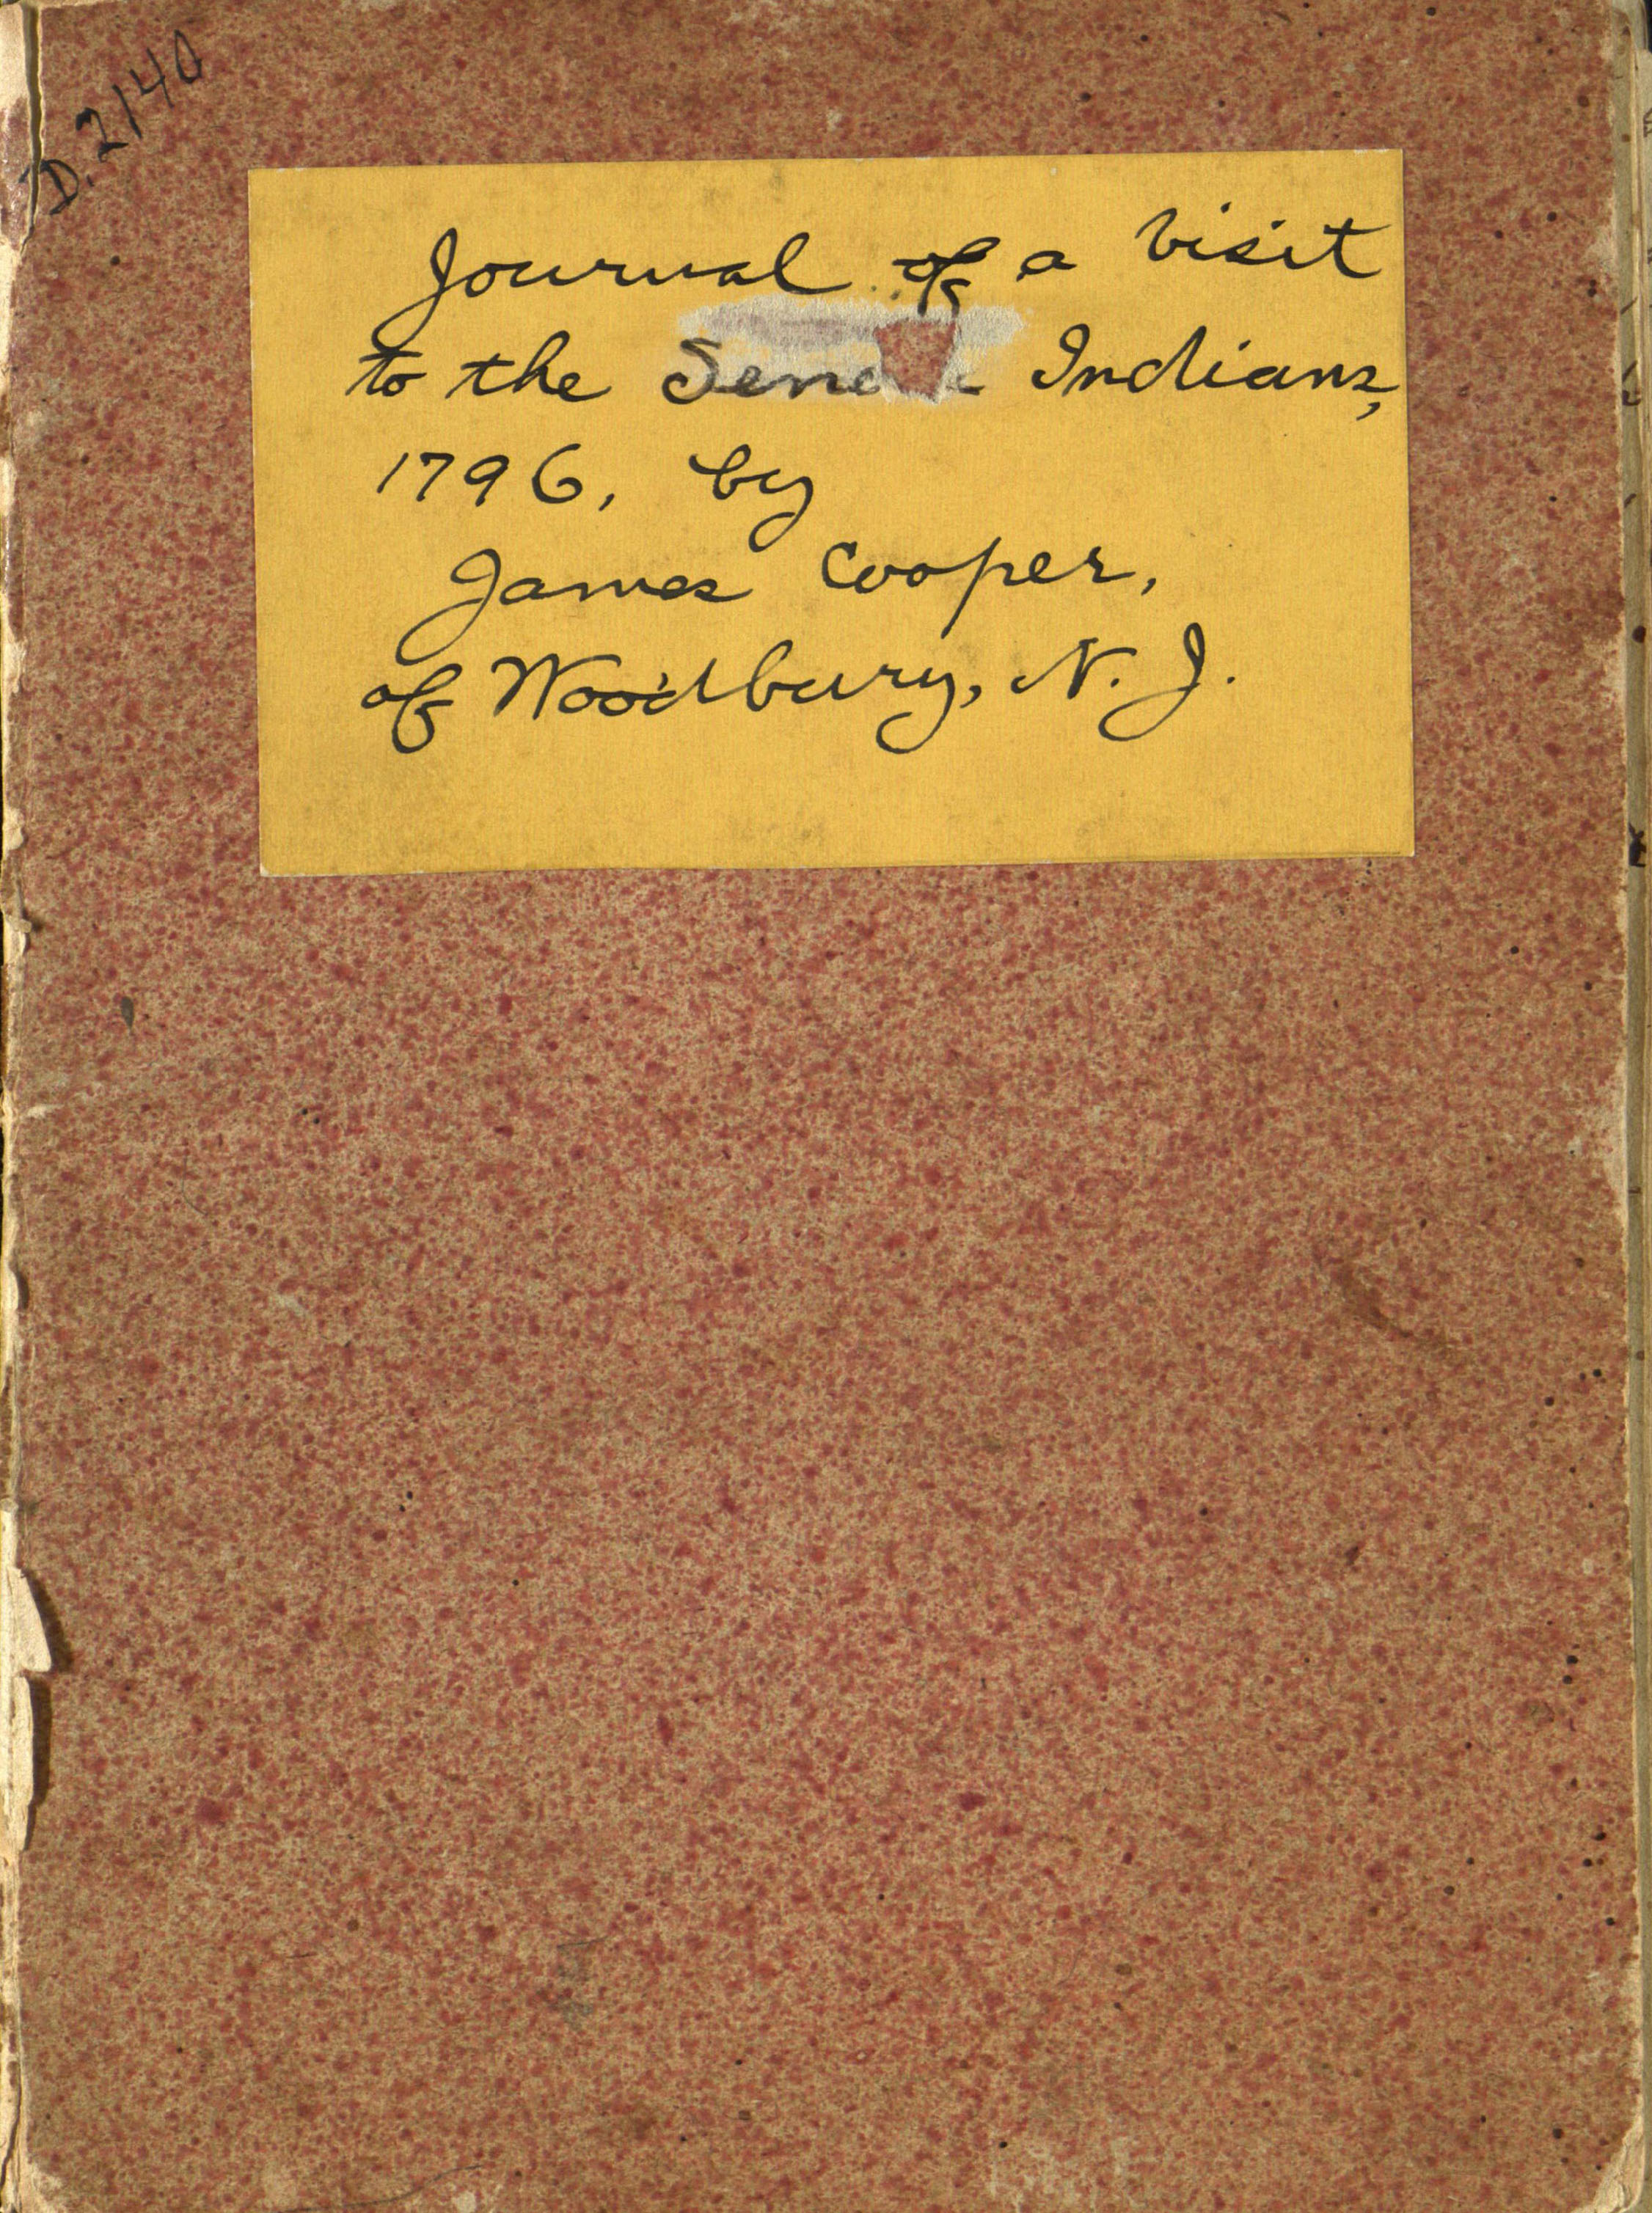 D. 2140
Journal of a visit
to the Indians,
1796, by
James Cooper,
of Woodbury, N. J.